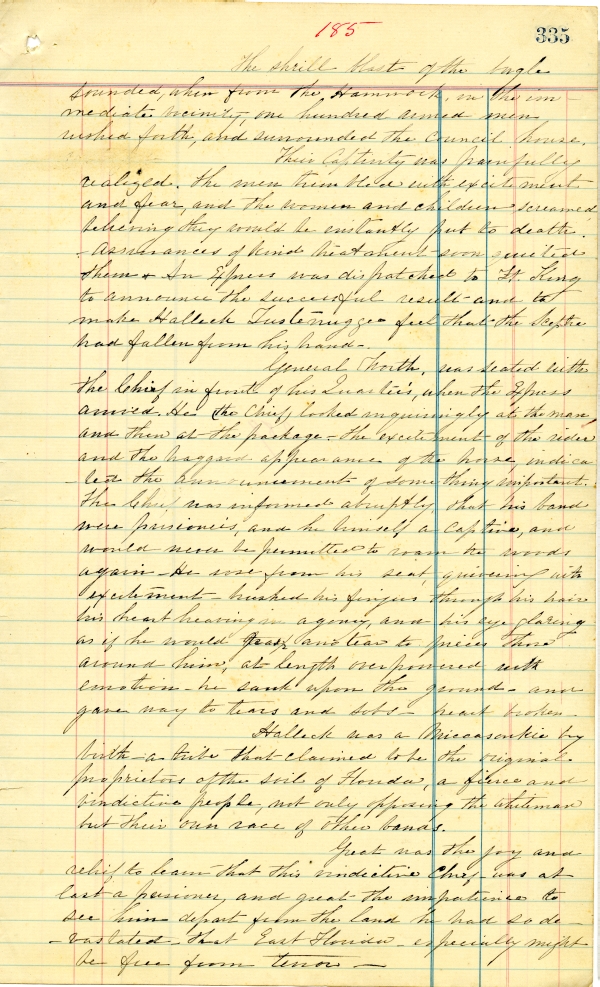 185
335
The shrill blast of the bugle
sounded, when from the Hammock, in the im-
mediate vicinity, one hundred armed men
rushed forth, and surrounded the council house.
Their Captivity was painfully
realized. The men trembled with excitement
and fear, and the women and children screamed
believing they would be instantly put to death.
- Assurances of kind treatment soon quieted
them & An Express was dispatched to Ft. King
to announce the successful result - and to
make Halleck Tustenuggee feel that the Sceptre
had fallen from his hand -.
General Worth, was seated with
the Chief in front of his Quarters, when the Express
arrived. He (the Chief) looked inquiringly at the man
and then at the package - the excitement of the rider
and the haggard appearance of the horse, indica
- ted the announcement of something important.
The Chief was informed abruptly, that his band
were prisoners, and he himself a captive, and
would never be permitted to roam the woods
again - He rose from his seat, quivering with
excitement - brushed his fingers through his hair
his heart heaving in agony, and his eye glaring
as if he would and tear to pieces those
around him, at length overpowered with
emotion - he sank upon the ground - and
gave way to tears and sobs - heart broken -
Halleck was a Miccasoukie by
birth - a tribe that claimed to be the original
proprietors of the soil of Florida, a fierce and
vindictive people, not only opposing the whiteman
but their own race of other bands.
Great was the joy and
relief to learn that this vindictive Chief was at
last a prisoner, and great the impatience to
see him depart from the land he had so de-
- vastated - that East Florida - especially might
be free from terror -